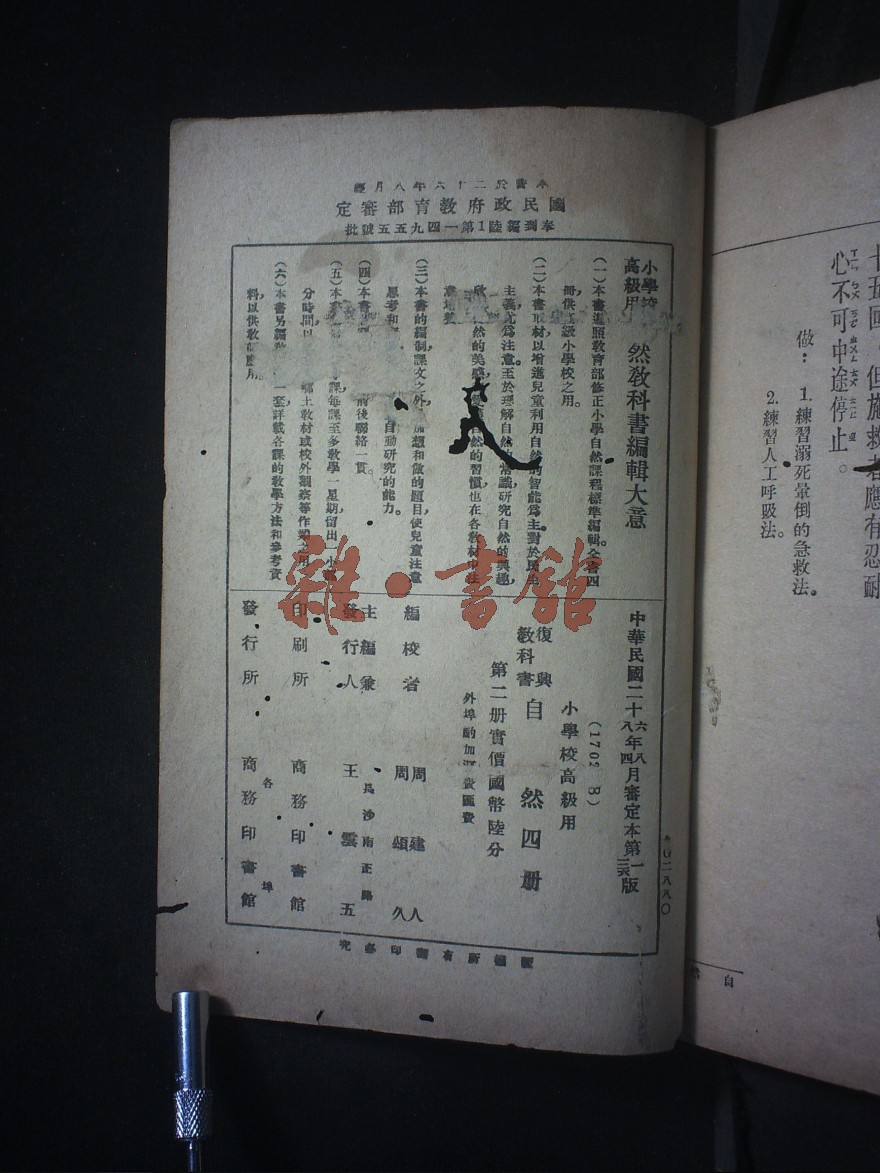 十五國。但施救者應有忍耐
心不可中途停止。
做：1.練習溺死暈倒的急救法。
2.練習人工呼吸法。
自
本書於二十六年八月經
國民政府教育部審定
奉到編陸1第一四九五五號批
小學校高級用
然教科書編輯大意
(一)本書遵照教育部修正小學自然課程標準編輯全書四
冊供高級小學校之用。
(二)本書取材以增進兒童利用自然的智能爲主對於民生
主義尤爲注意至於理解自然的常識研究自然的興趣，
欣 然的美感 自然的習慣也在各教材中注
意培養
(三)本書的編制課文之外， 想和做的題目使兒童注意
思考和 自動研究的能力。
(四)本 前後聯絡一貫。
(五)本 課，每課至多教學一星期留出一小部
分時間以 鄉土教材或校外觀察等作業之用
(六)本書另編教 一套詳載各課的教學方法和參考資
料，以供教師應用。
中華民國二十六年八月審定本第一版
八年四
二八八〇
小學校高級用
復興教科書 自然四冊
第二冊實價國幣陸分
外埠酌加 費匯費
編校者 周建人
周頌久
主編兼發行人 王雲五
長沙南正路
印刷所 商務印書館
發行所 商務印書館
各埠
版權所有翻印必究
雜·書館